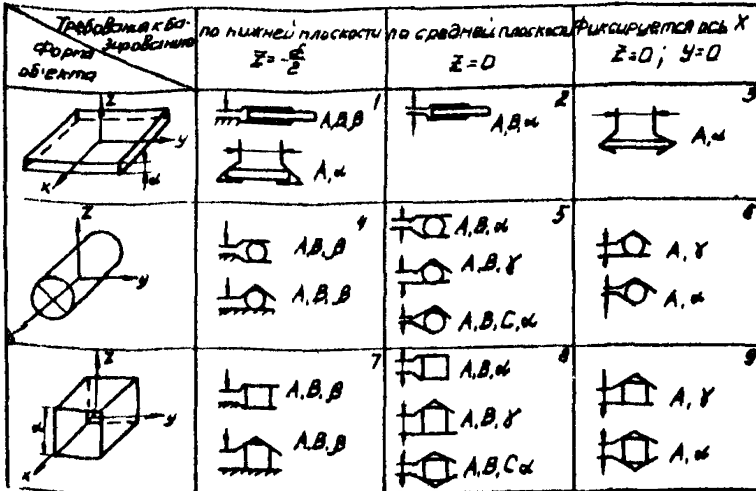 Требования к ба-
зированию
Форма
объекта
по нижней плоскости
Z=-α/2
по средней плоскости
Z=0
Фиксируется ось X
Z=0; y=0
z
y
x
α
1
A,B,β
A,α
2
A,B,α
3
A,α
z
y
4
A,B,β
A,B,β
5
A,B,α
A,B,γ
A,B,C,α
6
A,γ
A,α
z
y
x
α
7
A,B,β
A,B,β
8
A,B,α
A,B,γ
A,B,Cα
9
A,γ
A,α